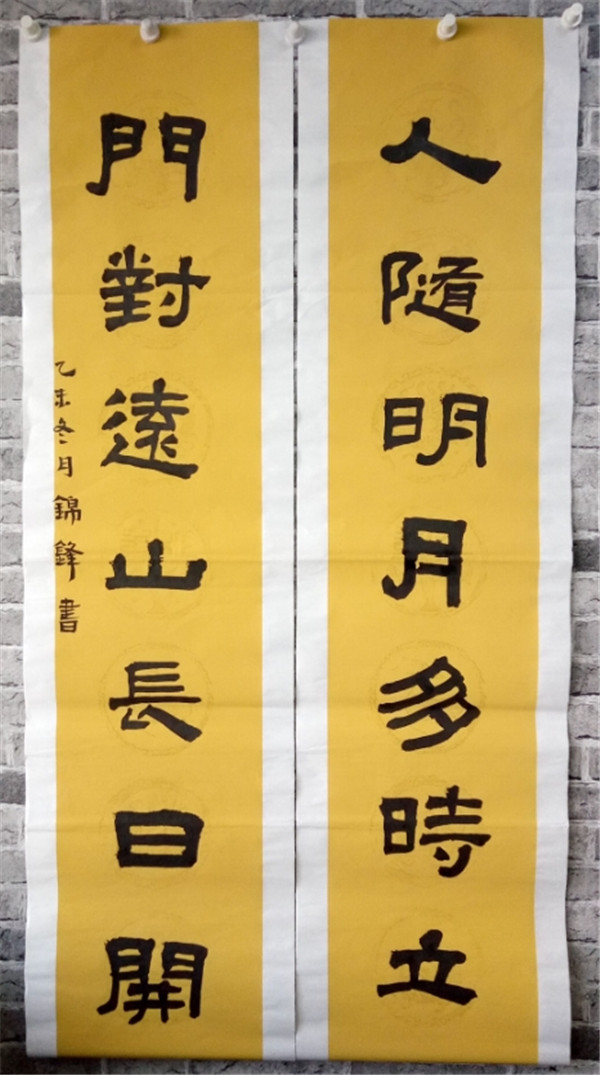 人隨明月多時立
門對遠山長日開
乙未冬月錦鋒書